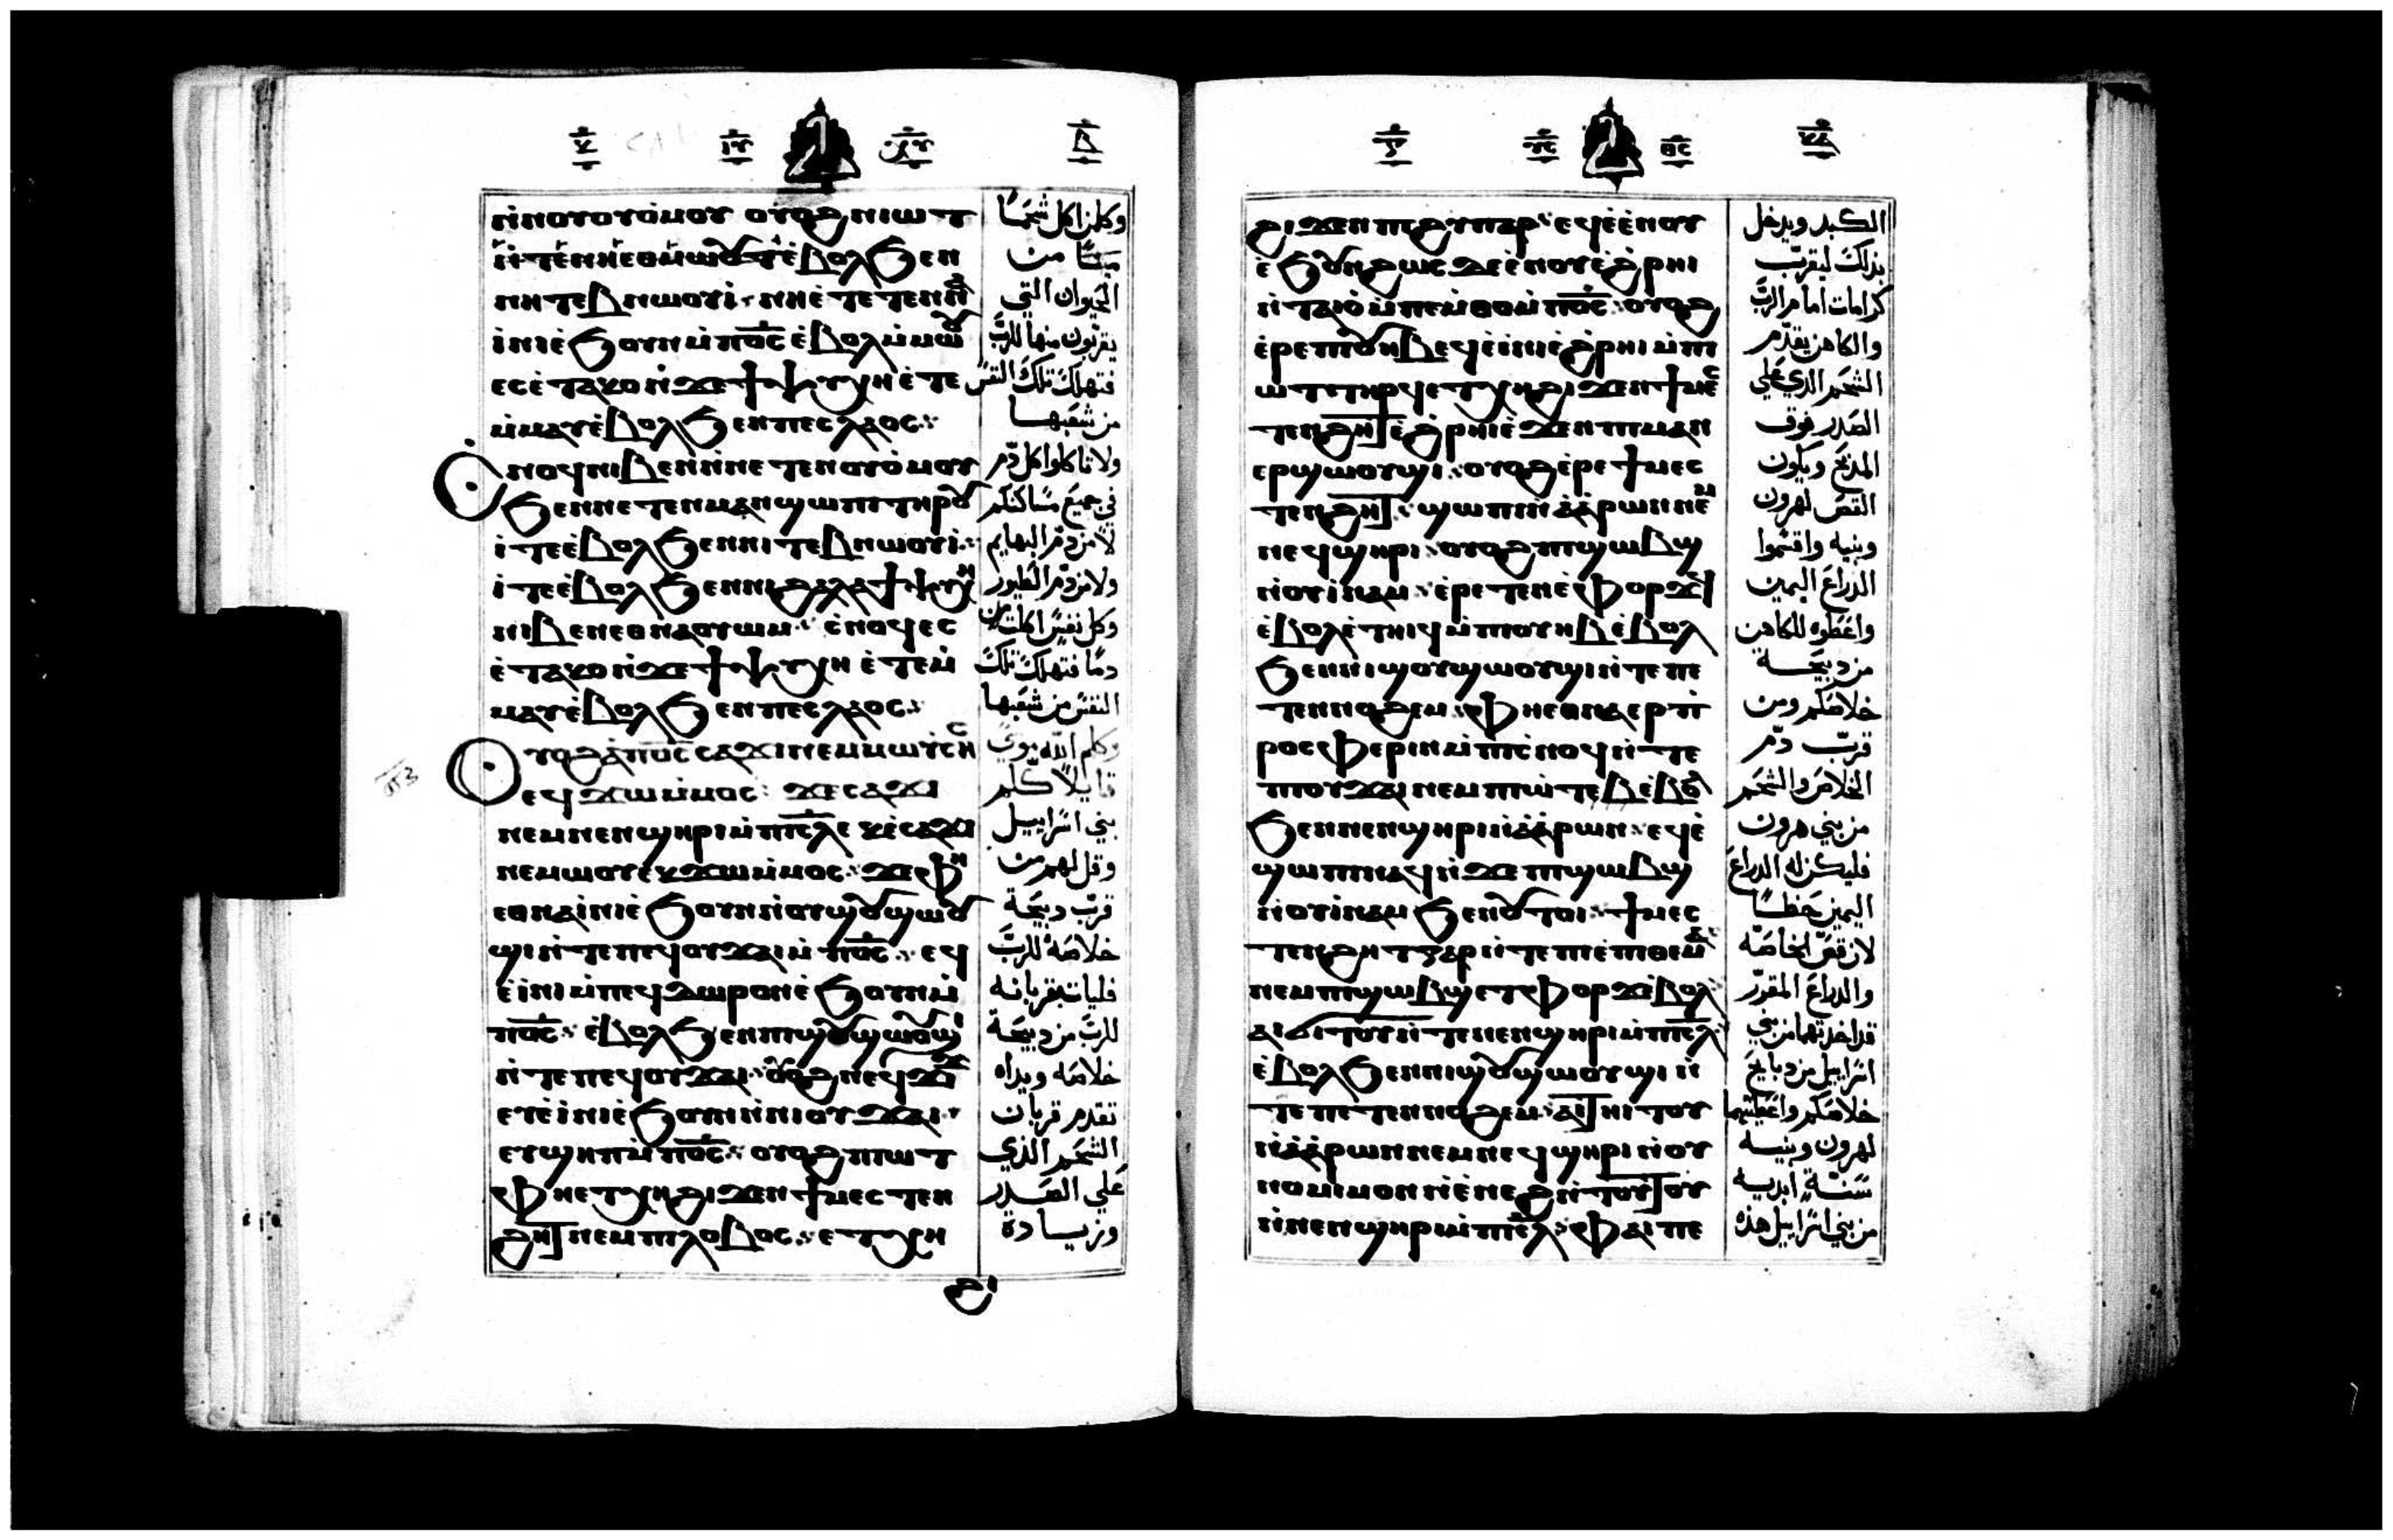 ⲛ̀ⲛⲟⲩⲟⲩⲟ̀ⲙⲟⲩ ⲟⲩⲟϩ ⲛⲓⲱⲧ
ⲉ̀ⲃⲟⲗϧⲉⲛ
ⲛⲏⲧⲉⲃⲛⲱⲟⲩⲓ̀
ⲓ̀ⲛⲓⲉ̀ϧⲟⲩⲛⲙ̀ⲡⲟ̅ⲥ̅ ⲉ̀ⲃⲟⲗⲙ̀ⲙⲱⲟⲩ
ⲉⲥⲉ̀ⲧⲁⲕⲟⲛ̀ϫⲉϯⲯⲩⲭⲏⲉ̀ⲧⲉ
ⲙ̀ⲙⲁⲩⲉ̀ⲃⲟⲗϧⲉⲛⲡⲉⲥⲗⲁⲟⲥ
ⲥⲛⲟϥⲛⲓⲃⲉⲛⲛ̀ⲛⲉⲧⲉⲛⲟⲩⲟ̀ⲙⲟⲩ
ϧⲉⲛⲛⲉⲧⲉⲛⲙⲁⲛϣⲱⲡⲓⲧⲏⲣⲟⲩ
ⲓ̀ⲧⲉⲉ̀ⲃⲟⲗϧⲉⲛⲛⲓⲧⲉⲃⲛⲱⲟⲩⲓ̀
ⲓ̀ⲧⲉⲉ̀ⲃⲟⲗϧⲉⲛⲛⲓϩⲁⲗⲁϯⲯⲩⲭⲏ
ⲛⲓⲃⲉⲛⲉⲑⲛⲁⲟⲩⲱⲙ ⲥ̀ⲛⲟϥⲉⲥ
ⲉ̀ⲧⲁⲕⲟⲛ̀ϫⲉϯⲯⲩⲭⲏ ⲉ̀ⲧⲉⲙ̀
ⲙⲁⲩⲉ̀ⲃⲟⲗϧⲉⲛⲡⲉⲥⲗⲁⲟⲥ
ⲟⲩⲟϩⲁ̀ⲡⲟ̅ⲥ̅ⲥⲁϫⲓⲛⲉⲙⲙⲱⲩ̀ⲥⲏⲥ
ⲉϥϫⲱⲙ̀ⲙⲟⲥ ϫⲉⲥⲁϫⲓ
ⲛⲉⲙⲛⲉⲛϣⲏⲣⲓⲙ̀ⲡⲓⲥ̅ⲗ̅ ⲉⲕⲉ̀ⲥⲁϫⲓ
ⲛⲉⲙⲱⲟⲩⲉⲕϫⲱⲙ̀ⲙⲟⲥ ϫⲉⲫⲏ
ⲉⲑⲛⲁⲓ̀ⲛⲓⲉ̀ϧⲟⲩⲛⲛ̀ⲟⲩϣⲟⲩϣⲱⲟⲩ
ϣⲓⲛ̀ⲧⲉⲡⲉϥⲟⲩϫⲁⲓⲙ̀ⲡⲟ̅ⲥ̅ ⲉϥ
ⲉ̀ⲓ̀ⲛⲓⲙ̀ⲡⲉϥⲇⲱⲣⲟⲛⲉ̀ϧⲟⲩⲛⲙ̀
ⲡⲟ̅ⲥ̅ ⲉ̀ⲃⲟⲗϧⲉⲛⲡⲓϣⲟⲩϣⲱⲟⲩϣⲓ
ⲛ̀ⲧⲉⲡⲉϥⲟⲩϫⲁⲓ ⲟⲩⲟϩⲛⲉϥϫⲓϫ
ⲉⲩⲉ̀ⲓ̀ⲛⲓⲉ̀ϧⲟⲩⲛⲛ̀ⲛⲓⲟⲩϫⲁⲓ
ⲉⲩϣⲏⲡⲙ̀ⲡⲟ̅ⲥ̅ ⲟⲩⲟϩⲡⲓⲱⲧ
ⲫⲏⲉⲧⲭⲏϩⲓϫⲉⲛϯⲙⲉⲥⲧⲉⲛ
ϩⲏⲧⲛⲉⲙⲡⲓⲗⲟⲃⲟⲥ ⲉⲧⲭⲏ
وكلن اكل شحمًا
ميتًا من
الحيوان التي
يقربون منها للرب
فتهلك تلك النفس
من شعبها
ولا تاكلوا كل دم
في جميع مساكنكم
لا من دم البهايم
ولا من دم الطيور
وكل نفس اكلت
دمًا فتهلك تلك
النفس من شعبها
وكلم الله موسي
قايلًا كلم
بني اسراييل
وقل لهم من
قرب دبيحة
خلاصة للرب
فليات بقربانه
للرب من دبيحة
خلاصه ويداه
تقدم قربان
الشحم الذي
علي الصدر
وزيادة
ϩⲓϫⲉⲛⲡⲓϩⲩⲡⲁⲣ ⲉϥⲉ̀ⲉ̀ⲛⲟⲩ
ⲉ̀ϧⲟⲩⲛϩⲱⲥⲇⲉⲉ̀ⲛⲟⲩⲉ̀ϩⲣⲏⲓ
ⲛ̀ⲧⲁⲓⲟ̀ⲙ̀ⲡⲉⲙ̀ⲑⲟⲙ̀ⲡⲟ̅ⲥ̅ ⲟⲩⲟϩ
ⲉ̀ⲣⲉⲡⲓⲟⲩⲏⲃⲉϥⲉ̀ⲓ̀ⲛⲓⲉ̀ϩⲣⲏⲓⲙ̀ⲡⲓ
ⲱⲧⲧⲏⲣϥⲉⲧⲭⲏϩⲓϫⲉⲛϯⲙⲉⲥ
ⲧⲉⲛϩⲏⲧⲉ̀ϩⲣⲏⲓⲉ̀ϫⲉⲛⲡⲓⲙⲁⲛ
ⲉⲣϣⲱⲟⲩϣⲓ ⲟⲩⲟϩⲉ̀ⲣⲉϯⲙⲉⲥ
ⲧⲉⲛϩⲏⲧ ϣⲱⲡⲓⲛ̀ⲁ̀ⲁ̀ⲣⲱⲛⲛⲉⲙ
ⲛⲉϥϣⲏⲣⲓ ⲟⲩⲟϩⲡⲓϣⲱⲃϣ
ⲛ̀ⲟⲩⲓ̀ⲛⲁⲙ ⲉ̀ⲣⲉⲧⲉⲛⲉ̀ⲫⲟⲣϫϥ
ⲉ̀ⲃⲟⲗⲉ̀ⲧⲏⲓϥⲙ̀ⲡⲓⲟⲩⲏⲃⲉ̀ⲃⲟⲗ
ϧⲉⲛⲛⲓϣⲟⲩϣⲱⲟⲩϣⲓⲛ̀ⲧⲉⲡⲉ
ⲧⲉⲛⲛⲟϩⲉⲙ ⲫⲏⲉⲑⲛⲁⲉⲣⲡ̀
ⲣⲟⲥⲫⲉⲣⲓⲛⲙ̀ⲡⲓⲥ̀ⲛⲟϥⲛ̀ⲧⲉ
ⲡⲓⲟⲩϫⲁⲓⲛⲉⲙⲡⲓⲱ̀ⲧ
ϧⲉⲛⲛⲉⲛϣⲏⲣⲓⲛ̀ⲁ̀ⲁ̀ⲣⲱⲛ ⲉϥⲉ̀
ϣⲱⲡⲓⲛⲁϥⲛ̀ϫⲉⲡⲓϣⲱⲃϣ
ⲛ̀ⲟⲩⲓ̀ⲛⲁⲙϧⲉⲛⲟⲩⲧⲟⲓ ϯⲙⲉⲥ
ⲧⲉⲛϩⲏⲧⲅⲁⲣⲛ̀ⲧⲉ
ⲛⲉⲙⲡⲓϣⲱⲃϣⲉⲧⲉⲫⲟⲣϫⲉ̀ⲃⲟⲗ
ⲁⲓϭⲓⲧⲟⲩⲛ̀ⲧⲉⲛⲉⲛϣⲏⲣⲓⲙ̀ⲡⲓⲥ̅ⲗ̅
ⲉ̀ⲃⲟⲗϧⲉⲛⲛⲓϣⲟⲩϣⲱⲟⲩϣⲓ ⲛ̀
ⲧⲉⲡⲉⲧⲉⲛⲛⲟϩⲉⲙ ⲁⲓⲧⲏⲓⲧⲟⲩ
ⲛ̀ⲁ̀ⲁ̀ⲣⲱⲛⲛⲉⲙⲛⲉϥϣⲏⲣⲓⲛ̀ⲟⲩ
ⲛⲟⲙⲓⲙⲟⲛⲛ̀ⲉ̀ⲛⲉϩⲛ̀ⲧⲟⲧⲟⲩ
ⲛ̀ⲛⲉⲛϣⲏⲣⲓⲙ̀ⲡⲓⲥ̅ⲗ̅ ⲫⲁⲓⲡⲉ
الكبد ويدخل
بذلك ليقرب
كرامات امام الرب
والكاهن يقدم
الشحم الذي علي
الصدر فوق
المذبح ويكون
القص لهرون
وبنيه واقسموا
الدراع اليمين
واعطوه للكاهن
من دبيحة
خلاصكم ومن
قرب دم
الخلاص والشحم
من بني هرون
فليكن له الدراع
اليمين حظًا
لان قص الخاصه
والدراع المقرر
قد اخدتهما من بني
اسراييل من دبايح
خلاصكم واعطيتهما
لهرون وبنيه
سنة ابدية
من بني اسراييل هذه